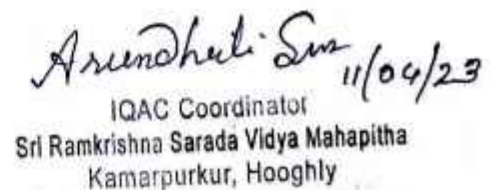 Arundhati Sur 11/04/23
IQAC Coordinator
Sri Ramkrishna Sarada Vidya Mahapitha
Kamarpurkur, Hooghly